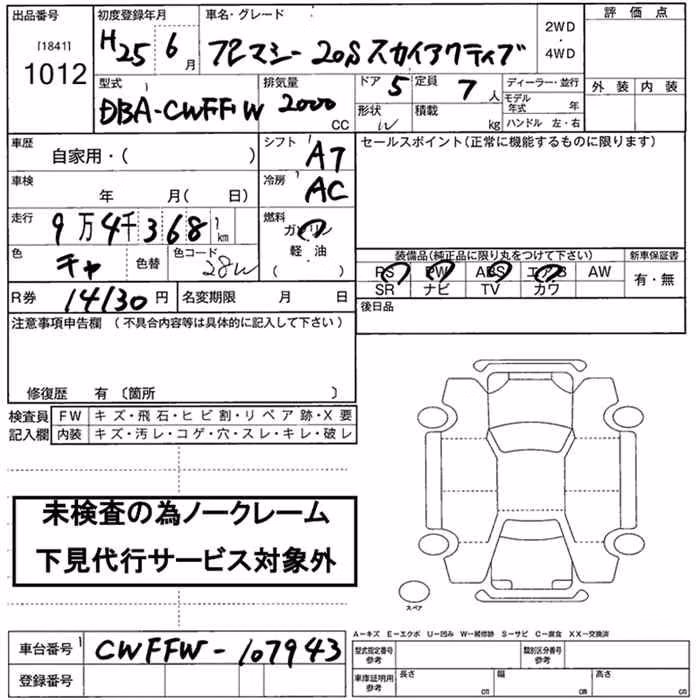 出品番号 初度登録年月 車名・グレード 2WD ・ 4WD 評価点
[1841] 1012
H25 6月 プレマシー 20S スカイアクティブ
型式 排気量 ドア 5 定員 7人 ディーラー・並行 外装 内装
DBA-CWFFW 2000 CC 形状 W 積載 kg モデル年式 年
ハンドル 左・右
車歴 自家用・( ) シフト A7 セールスポイント(正常に機能するものに限ります)
車検 年 月( 日) 冷房 AC
走行 9万4千368 km 燃料 ガソリン
軽・油
( )
色 チャ 色替 色コード 28W
装備品(純正品に限り丸をつけて下さい) 新車保証書
PS PW ABS エアB AW 有・無
SR ナビ TV カワ
R券 14130円 名変期限 月 日 後日品
注意事項申告欄 (不具合内容等は具体的に記入して下さい)
修復歴 有 〔箇所 〕
検査員 FW キズ・飛石・ヒビ割・リペア跡・X要
記入欄 内装 キズ・汚レ・コゲ・穴・スレ・キレ・破レ
未検査の為ノークレーム
下見代行サービス対象外
スペア
A-キズ E-エクボ U-凹み W-補修跡 S-サビ C-腐食 XX-交換済
車台番号 CWFFW-107943 型式指定番号 参考 類別区分番号 参考
登録番号 車庫証明用 参考 長さ cm 幅 cm 高さ cm